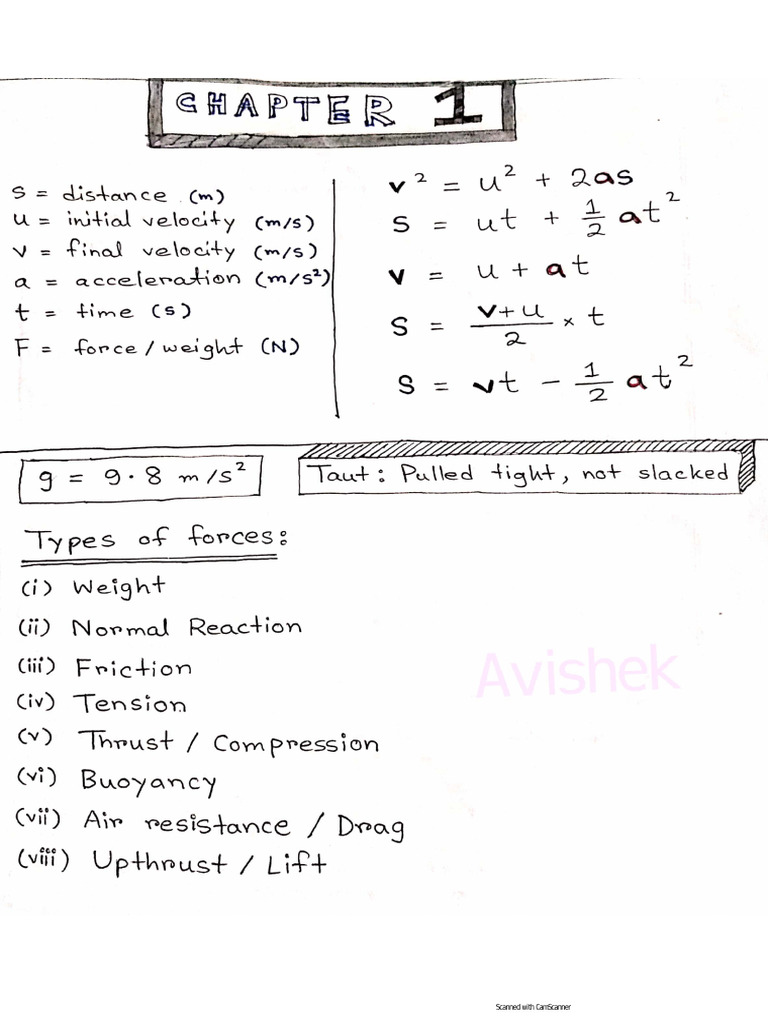 CHAPTER 1
s = distance (m)
u = initial velocity (m/s)
v = final velocity (m/s)
a = acceleration (m/s²)
t = time (s)
F = force/weight (N)
v² = u² + 2as
s = ut + 1/2 at²
v = u + at
s = v+u/2 × t
s = vt − 1/2 at²
g = 9.8 m/s²
Taut: Pulled tight, not slacked
Types of forces:
(i) Weight
(ii) Normal Reaction
(iii) Friction
(iv) Tension
(v) Thrust / Compression
(vi) Buoyancy
(vii) Air resistance / Drag
(viii) Upthrust / Lift
Avishek
Scanned with CamScanner